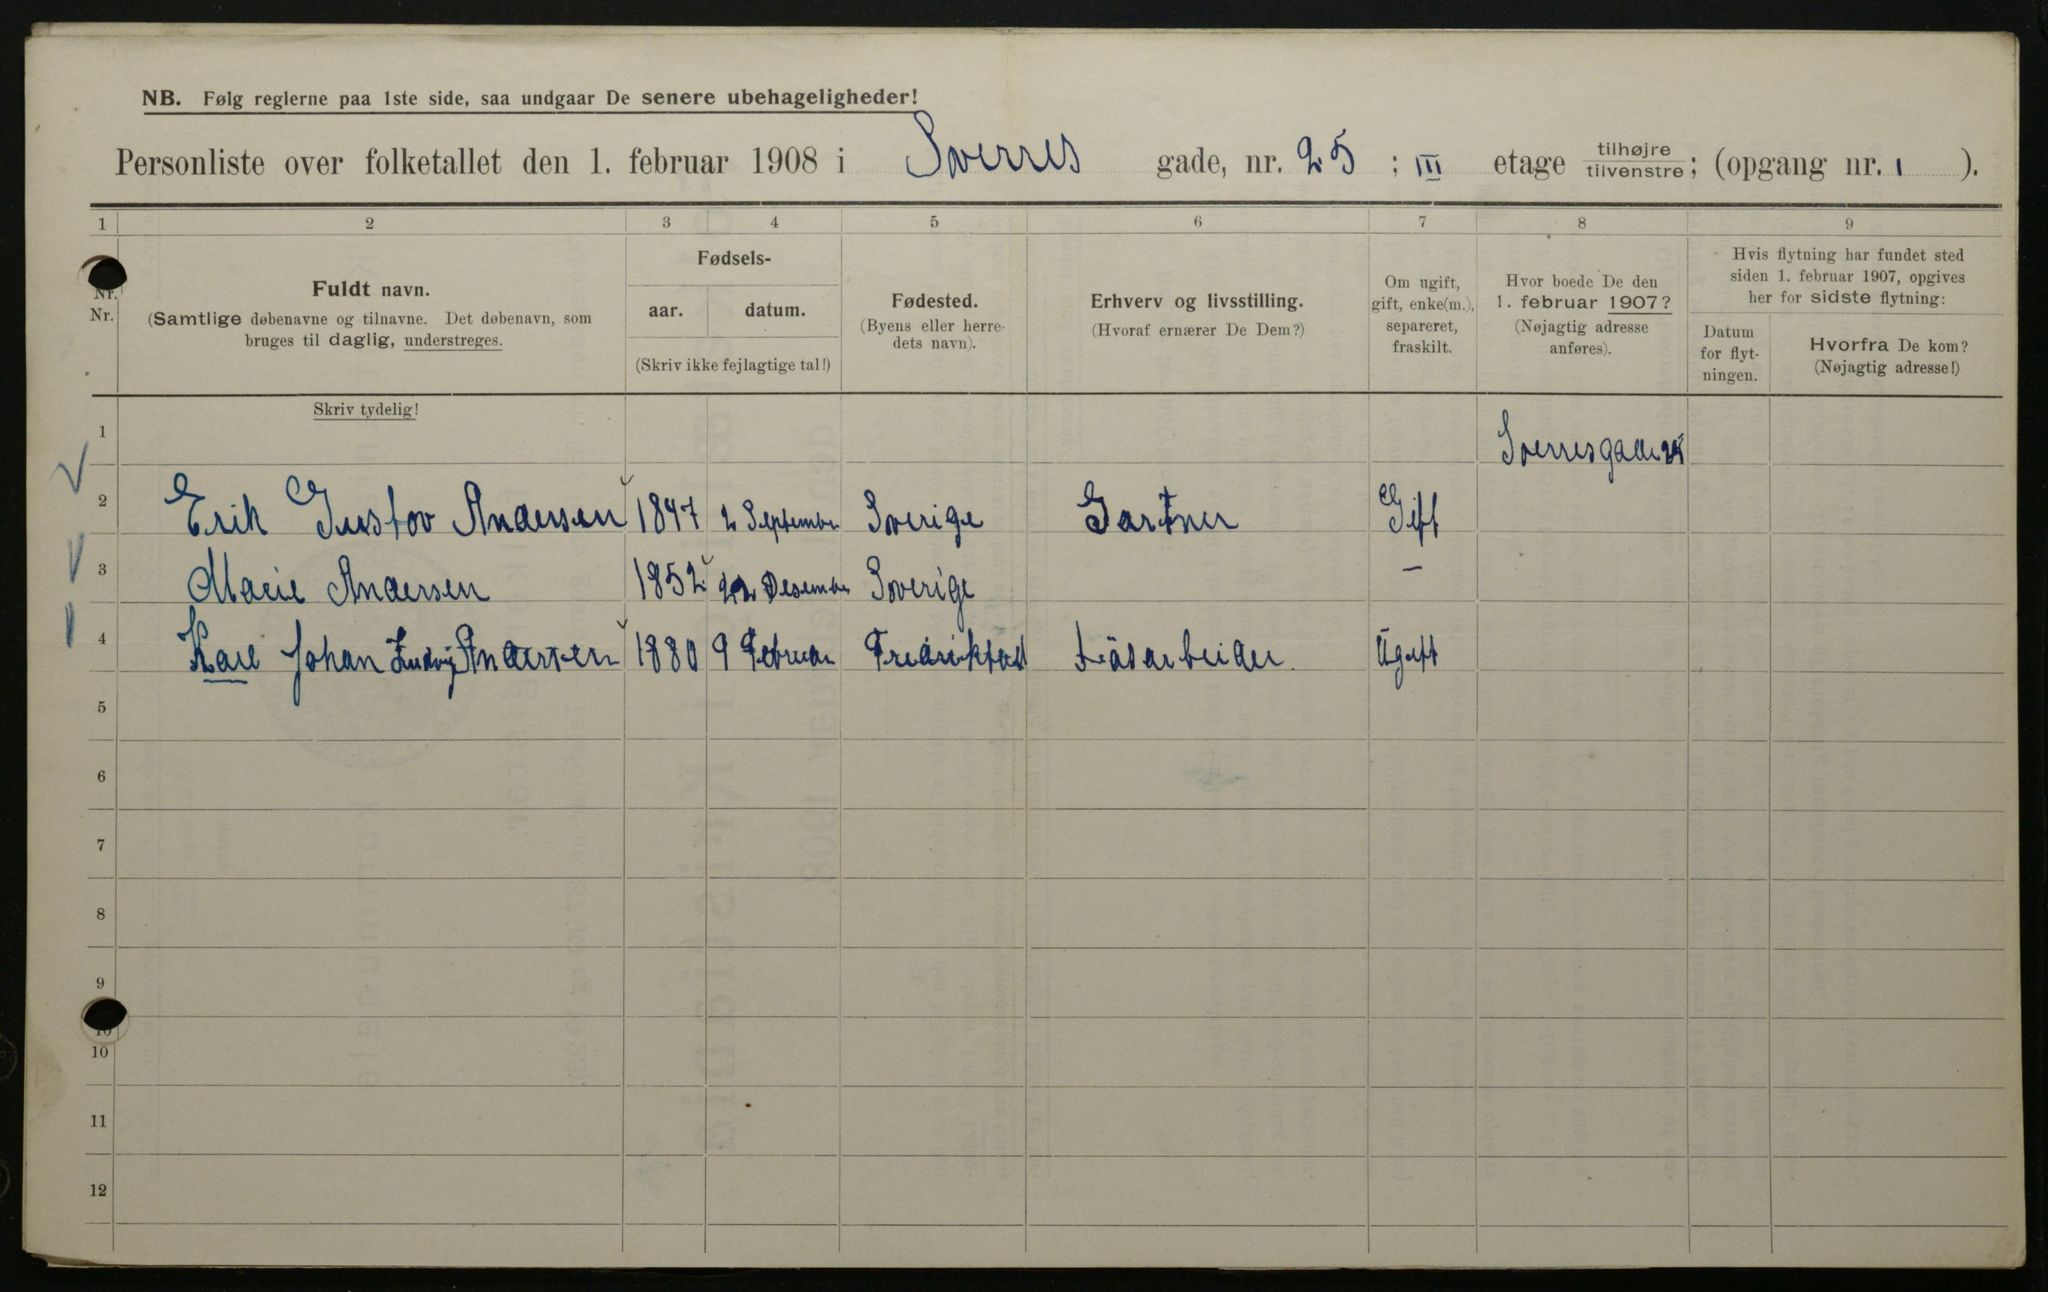 NB. Følg reglerne paa 1ste side, saa undgaar De senere ubehageligheder!
Personliste over folketallet den 1. februar 1908 i Sverres gade, nr. 25 ; III etage tilhøjre tilvenstre; (opgang nr. 1 ).
1 2 3 4 5 6 7 8 9
Nr. Nr.
Fuldt navn.
(Samtlige døbenavne og tilnavne. Det døbenavn, som
bruges til daglig, understreges.
Fødsels-
aar. datum.
(Skriv ikke fejlagtige tal!)
Fødested.
(Byens eller herre-
dets navn).
Erhverv og livsstilling.
(Hvoraf ernærer De Dem?)
Om ugift,
gift, enke(m.),
separeret,
fraskilt.
Hvor boede De den
1. februar 1907?
(Nøjagtig adresse
anføres).
Hvis flytning har fundet sted
siden 1. februar 1907, opgives
her for sidste flytning:
Datum
for flyt-
ningen.
Hvorfra De kom?
(Nøjagtig adresse!)
Skriv tydelig!
1 Sverresgade 25
2 Erik Gustav Andersen 1847 2 September Sverige Gartner Gift
3 Marie Andersen 1852 22 Desember Sverige –
4 Karl Johan Ludvig Andersen 1880 9 Februar Fredrikstad Løsarbeider Ugift
5
6
7
8
9
10
10
11
12